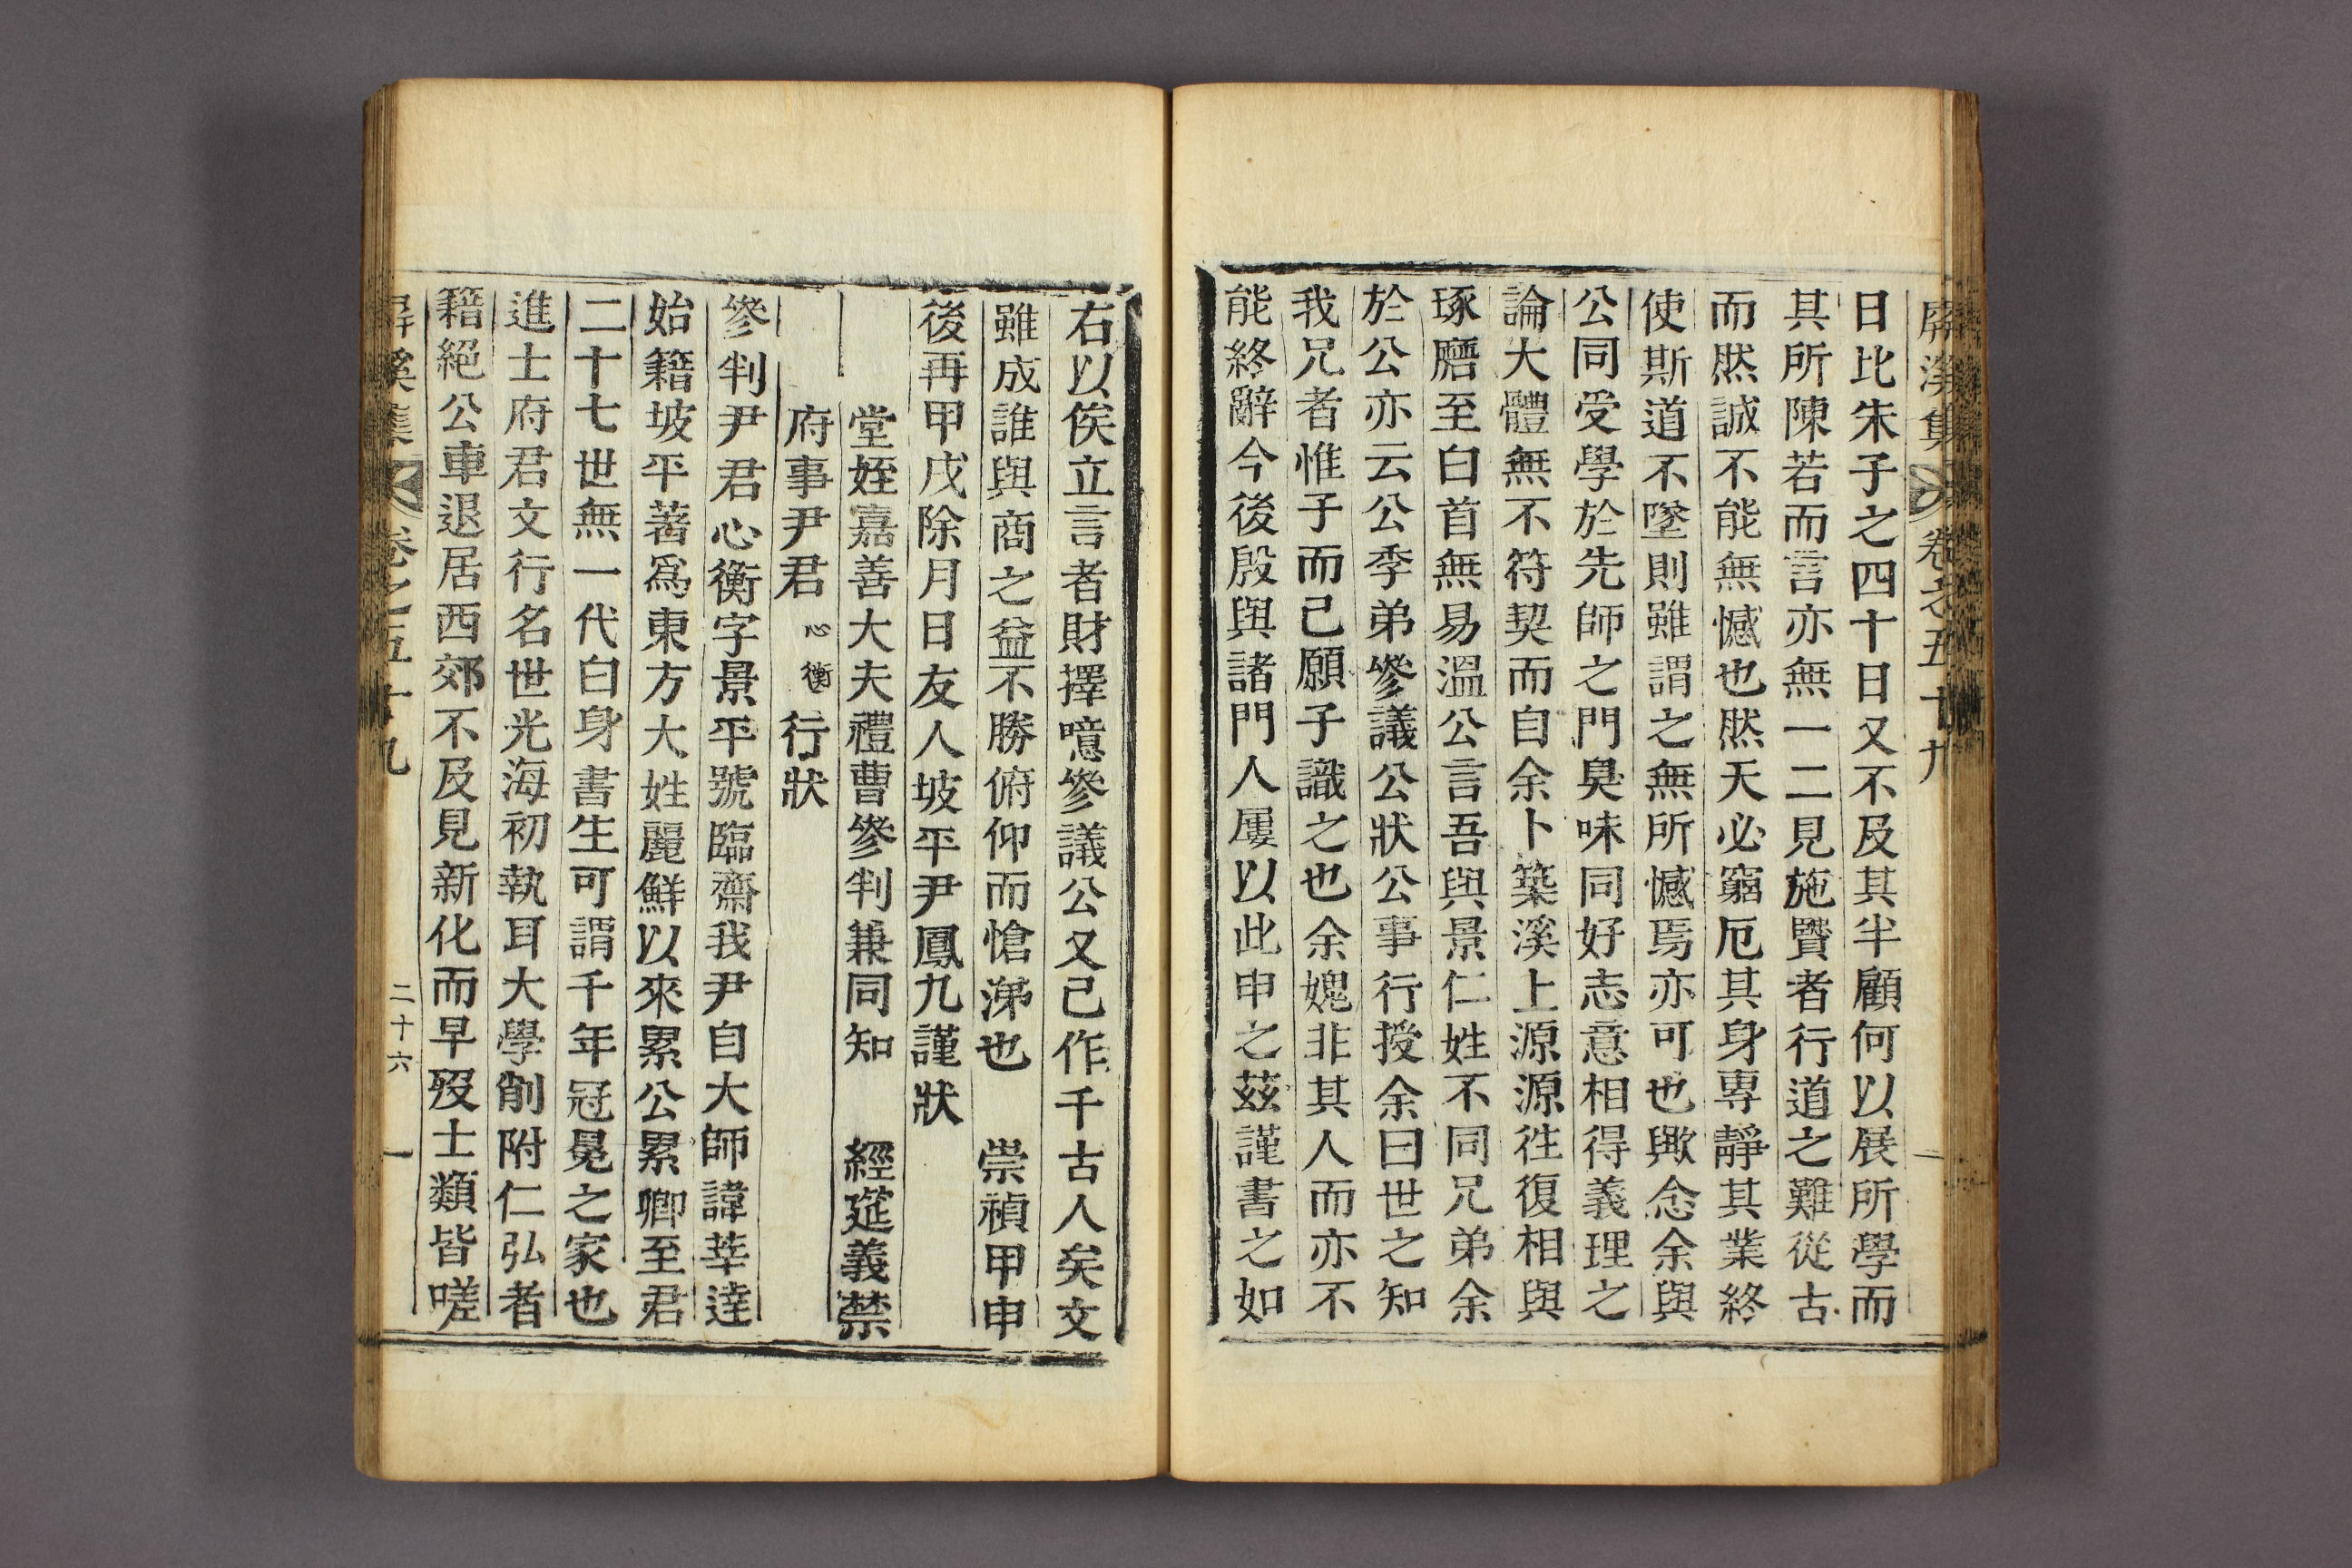 屛溪集 卷之五十九
日比朱子之四十日又不及其半顧何以展所學而
其所陳若而言亦無一二見施贒者行道之難從古
而然誠不能無憾也然天必窮厄其身專靜其業終
使斯道不墜則雖謂之無所憾焉亦可也歟念余與
公同受學於先師之門臭味同好志意相得義理之
論大體無不符契而自余卜築溪上源源徃復相與
琢磨至白首無易溫公言吾與景仁姓不同兄弟余
於公亦云公季弟叅議公狀公事行授余曰世之知
我兄者惟子而已願子識之也余媿非其人而亦不
能終辭今後殷與諸門人屢以此申之茲謹書之如
右以俟立言者財擇噫叅議公又已作千古人矣文
雖成誰與商之益不勝俯仰而愴涕也 崇禎甲申
後再甲戌除月日友人坡平尹鳳九謹狀
堂姪嘉善大夫禮曹叅判兼同知 經筵義禁
府事尹君 心衡 行狀
叅判尹君心衡字景平號臨齋我尹自大師諱莘達
始籍坡平著爲東方大姓麗鮮以來累公累卿至君
二十七世無一代白身書生可謂千年冠冕之家也
進士府君文行名世光海初執耳大學削附仁弘者
籍絕公車退居西郊不及見新化而早歿士類皆嗟
屛溪集 卷之五十九 二十六